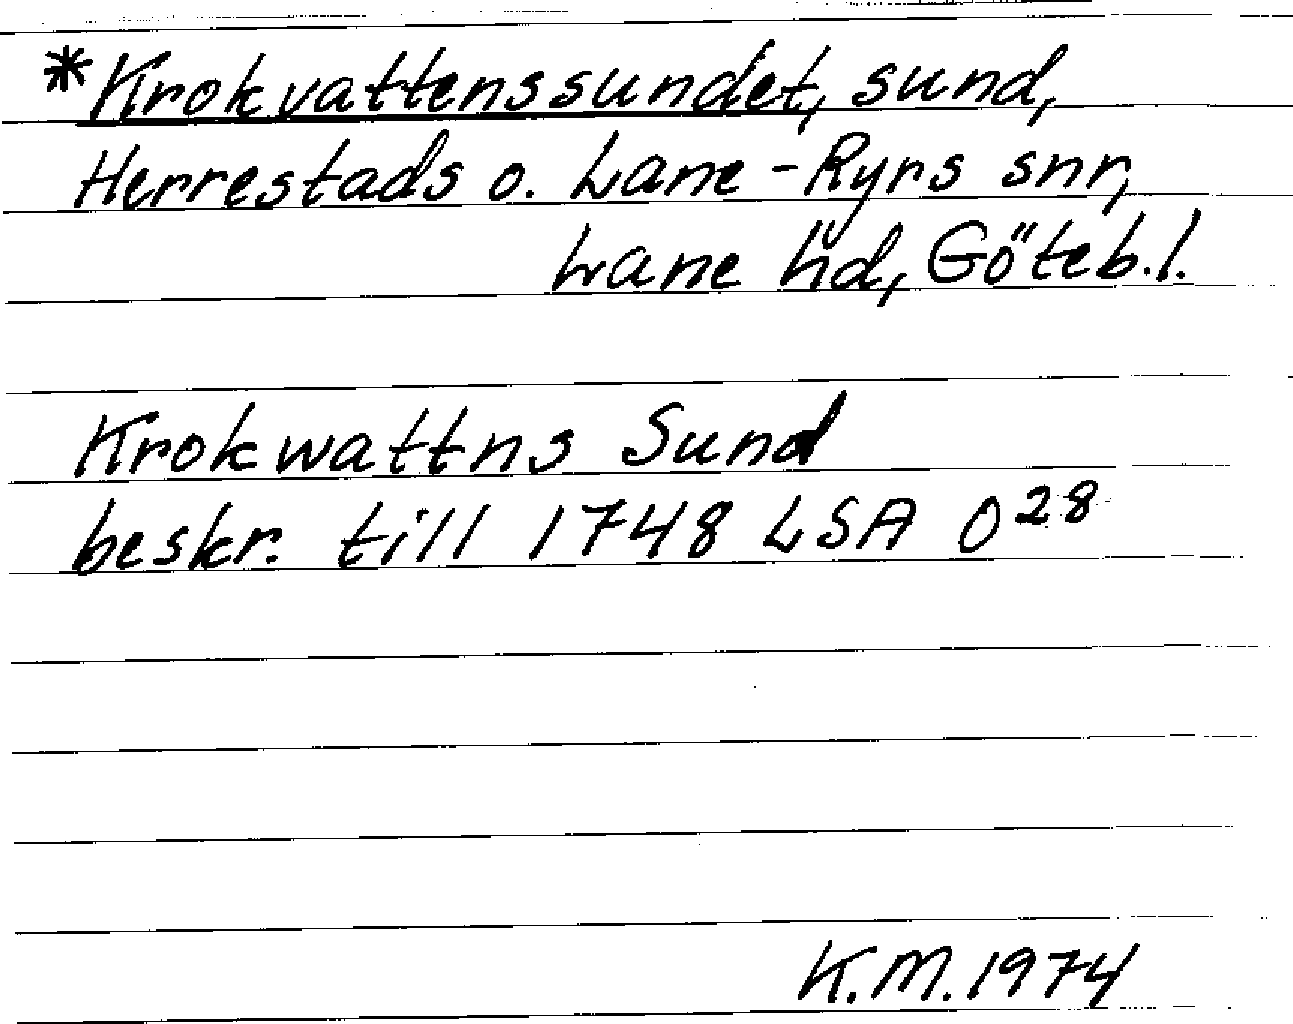 *Krokvattenssundet, sund,
Herrestads o. Lane-Ryrs snr,
Lane hd, Göteb.l.
Krokwattns Sund
beskr. till 1748 LSA O28
K.M. 1974